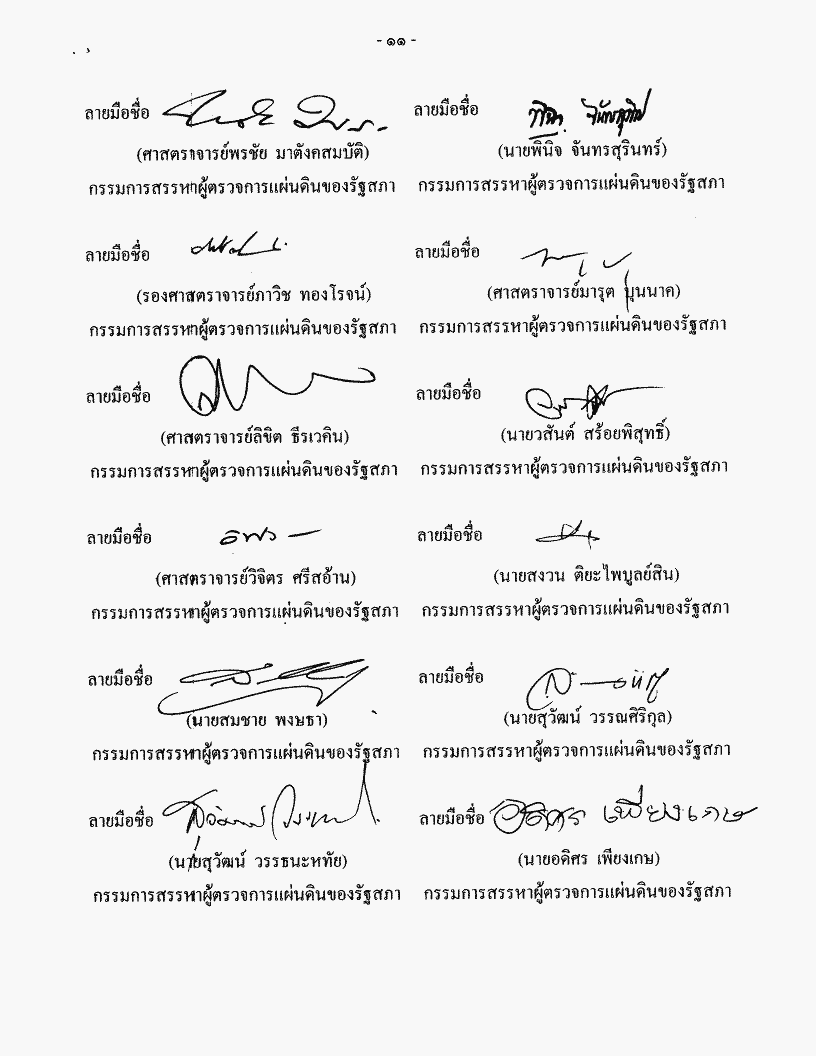 - ๑๑ -
ลายมือชื่อ
(ศาสตราจารย์พรชัย มาตังคสมบัติ)
กรรมการสรรหาผู้ตรวจการแผ่นดินของรัฐสภา
ลายมือชื่อ พินิจ จันทรสุรินทร์
(นายพินิจ จันทรสุรินทร์)
กรรมการสรรหาผู้ตรวจการแผ่นดินของรัฐสภา
ลายมือชื่อ
(รองศาสตราจารย์ภาวิช ทองโรจน์)
กรรมการสรรหาผู้ตรวจการแผ่นดินของรัฐสภา
ลายมือชื่อ
(ศาสตราจารย์มารุต บุนนาค)
กรรมการสรรหาผู้ตรวจการแผ่นดินของรัฐสภา
ลายมือชื่อ
(ศาสตราจารย์ลิขิต ธีรเวคิน)
กรรมการสรรหาผู้ตรวจการแผ่นดินของรัฐสภา
ลายมือชื่อ
(นายวสันต์ สร้อยพิสุทธิ์)
กรรมการสรรหาผู้ตรวจการแผ่นดินของรัฐสภา
ลายมือชื่อ
(ศาสตราจารย์วิจิตร ศรีสอ้าน)
กรรมการสรรหาผู้ตรวจการแผ่นดินของรัฐสภา
ลายมือชื่อ
(นายสงวน ติยะไพบูลย์สิน)
กรรมการสรรหาผู้ตรวจการแผ่นดินของรัฐสภา
ลายมือชื่อ
(นายสมชาย พงษธา)
กรรมการสรรหาผู้ตรวจการแผ่นดินของรัฐสภา
ลายมือชื่อ
(นายสุวัฒน์ วรรณศิริกุล)
กรรมการสรรหาผู้ตรวจการแผ่นดินของรัฐสภา
ลายมือชื่อ
(นายสุวัฒน์ วรรธนะหทัย)
กรรมการสรรหาผู้ตรวจการแผ่นดินของรัฐสภา
ลายมือชื่อ อดิศร เพียงเกษ
(นายอดิศร เพียงเกษ)
กรรมการสรรหาผู้ตรวจการแผ่นดินของรัฐสภา